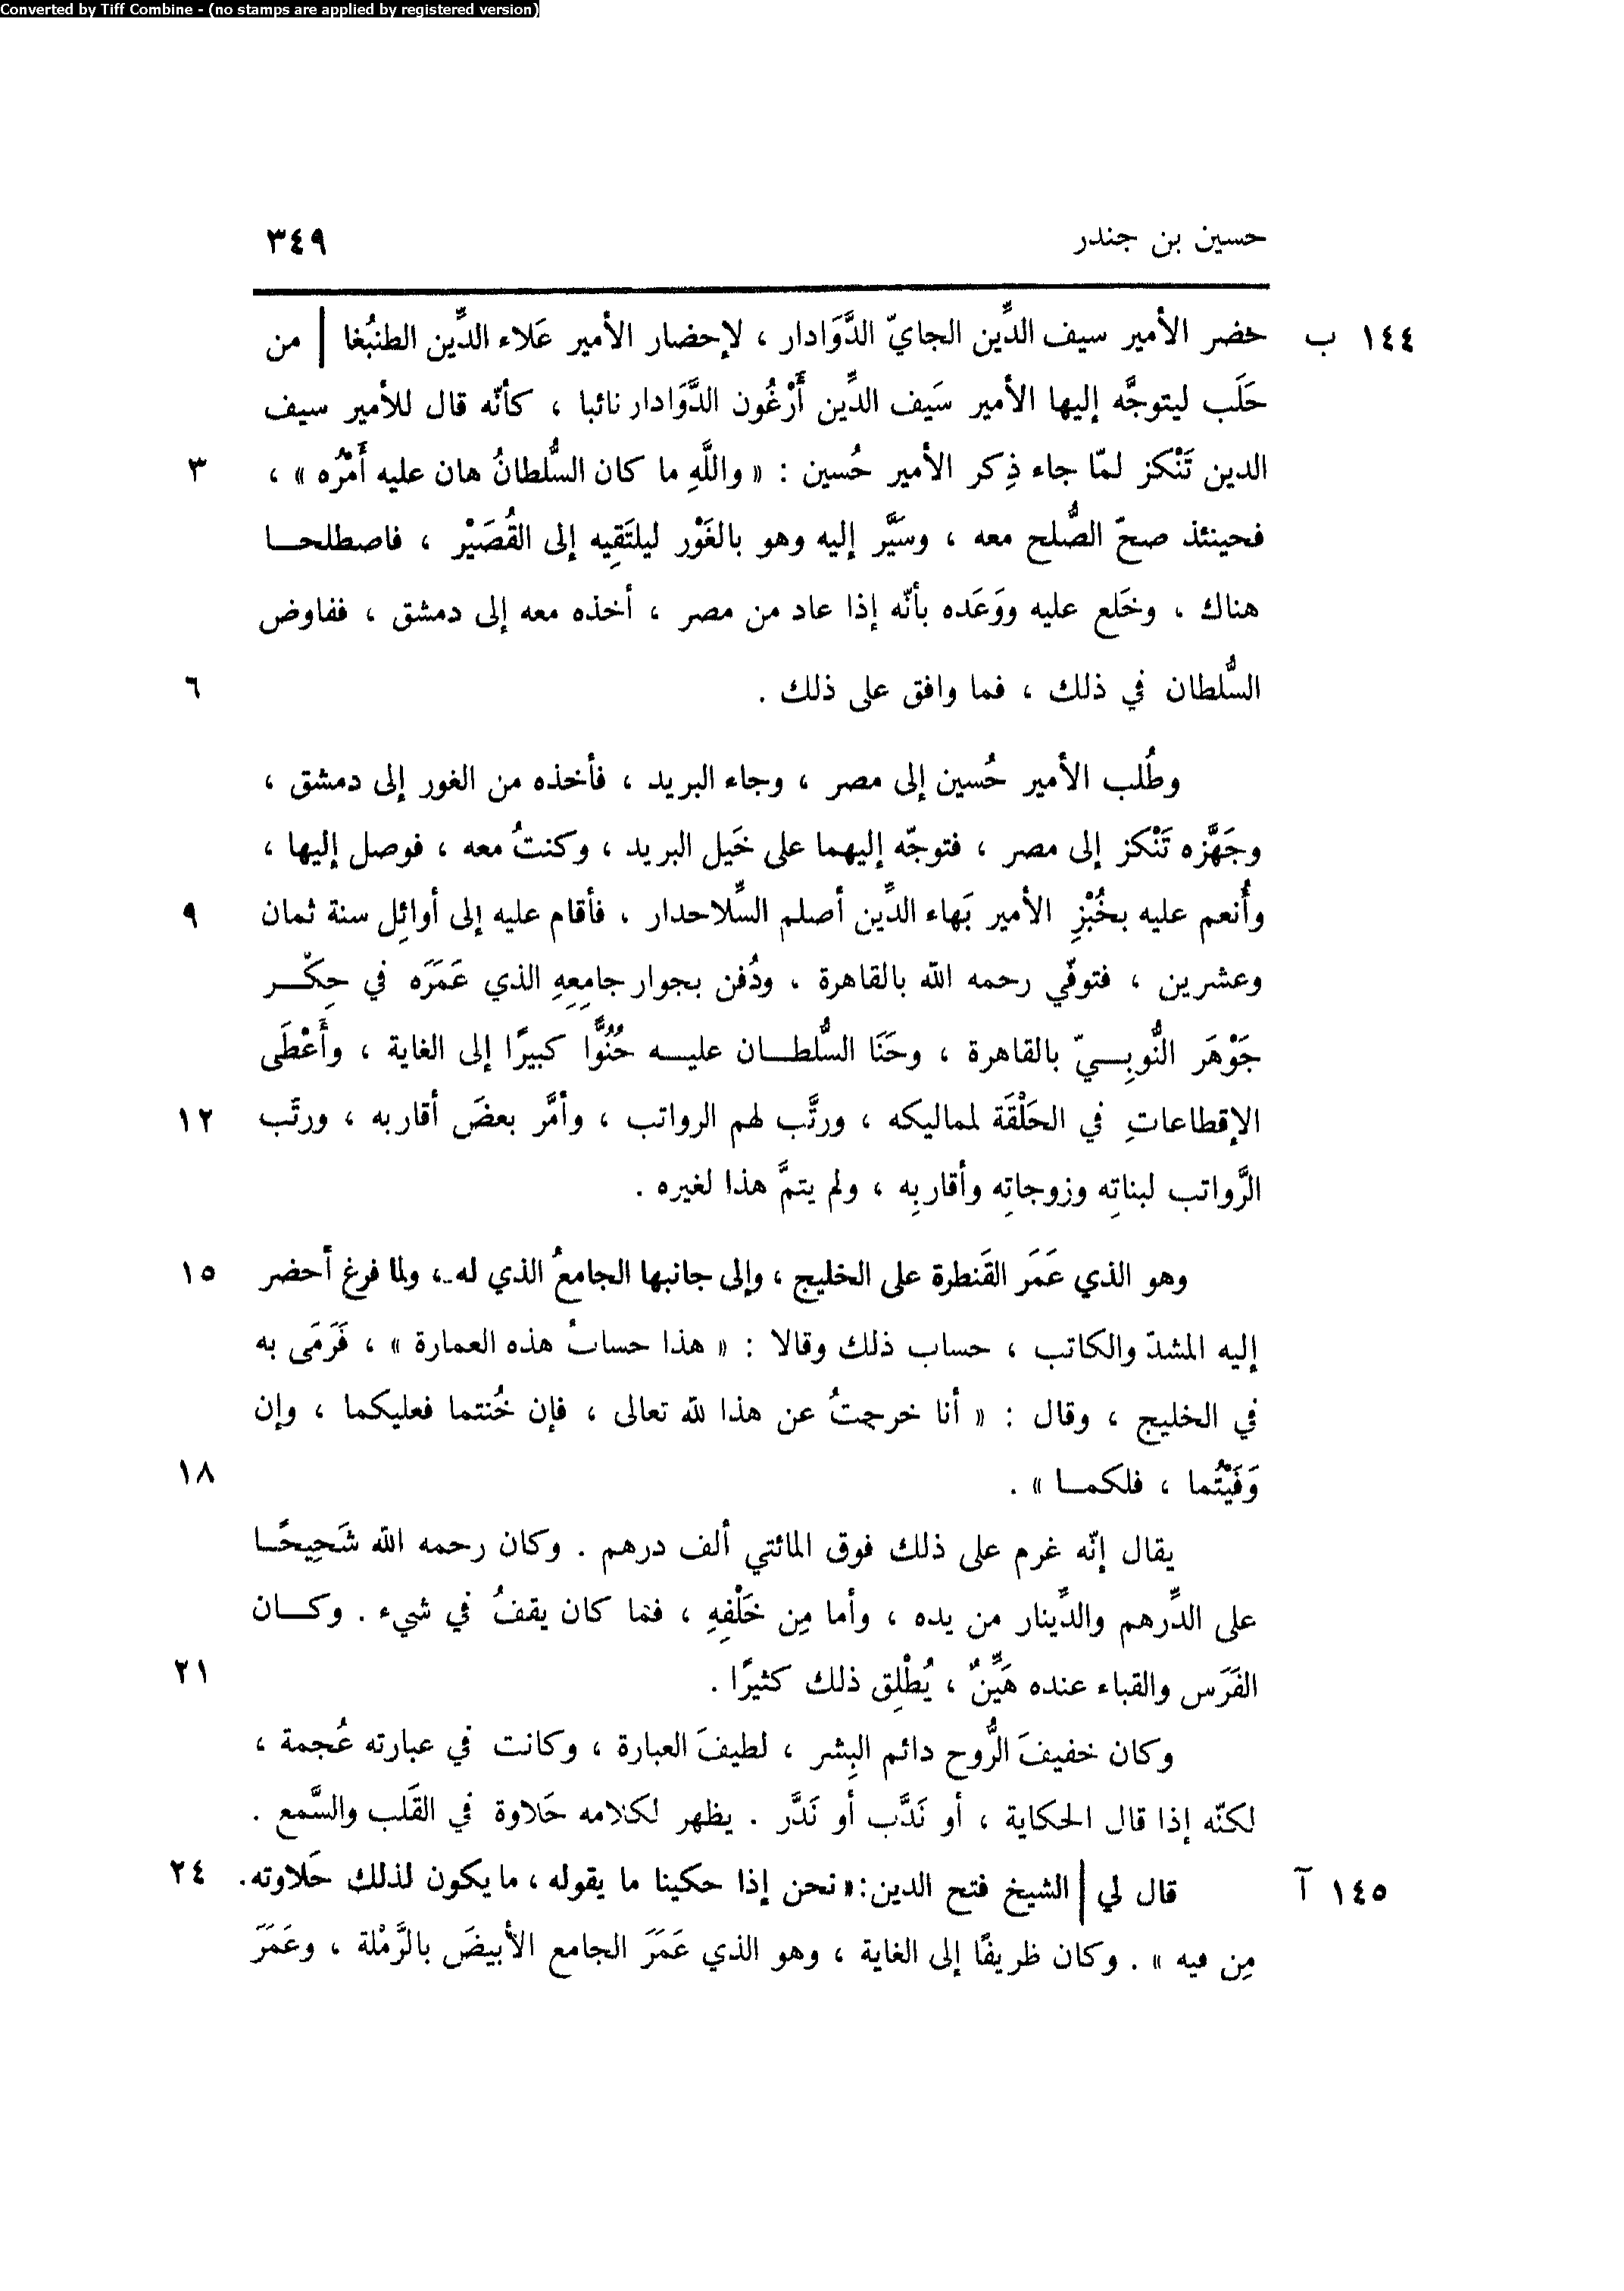 Converted by Tiff Combine - (no stamps are applied by registered version)
حسين بن جندر ٣٤٩
١٤٤ ب حضر الأمير سيف الدِّين الجايّ الدَّوَادار ، لإحضار الأمير عَلاء الدِّين الطنبُغا | من
حَلَب ليتوجَّه إليها الأمير سَيف الدِّين أَرْغُون الدَّوَادار نائبا ، كأنّه قال للأمير سيف
الدين تَنْكز لمّا جاء ذِكر الأمير حُسين : « واللَّهِ ما كان السُّلطانُ هان عليه أَمْرُه » ، ٣
فحينئذ صحّ الصُّلح معه ، وسَيَّر إليه وهو بالغَوْر ليلتَقِيه إلى القُصَيْر ، فاصطلحـا
هناك ، وخَلع عليه ووَعَده بأنّه إذا عاد من مصر ، أخذه معه إلى دمشق ، ففاوض
السُّلطان في ذلك ، فما وافق على ذلك . ٦
وطُلب الأمير حُسين إلى مصر ، وجاء البريد ، فأخذه من الغور إلى دمشق ،
وجَهَّزه تَنْكز إلى مصر ، فتوجّه إليهما على خَيل البريد ، وكنتُ معه ، فوصل إليها ،
وأُنعم عليه بخُبْزِ الأمير بَهاء الدِّين أصلم السِّلاحدار ، فأقام عليه إلى أوائِل سنة ثمان ٩
وعشرين ، فتوفّي رحمه الله بالقاهرة ، ودُفن بجوار جامِعِهِ الذي عَمَرَه في حِكْـر
جَوْهَر النُّوبِـيّ بالقاهرة ، وحَنَا السُّلطـان عليـه حُنُوًّا كبيرًا إلى الغاية ، وأَعْطَى
الإقطاعاتِ في الحَلْقَة لمماليكه ، ورتَّب لهم الرواتب ، وأمَّر بعضَ أقاربه ، ورتَّب ١٢
الرَّواتب لبناتِه وزوجاتِه وأقاربِه ، ولم يتمَّ هذا لغيره .
وهو الذي عَمَر القَنطرة على الخليج ، وإلى جانبها الجامعُ الذي له ، ولما فرغ أحضر ١٥
إليه المشدّ والكاتب ، حساب ذلك وقالا : « هذا حسابُ هذه العمارة » ، فَرَمَى به
في الخليج ، وقال : « أنا خرجتُ عن هذا لله تعالى ، فإن خُنتما فعليكما ، وإن
وَفَيْتُما ، فلكمـا » . ١٨
يقال إنّه غرم على ذلك فوق المائتي ألف درهم . وكان رحمه الله شَحِيحًـا
على الدِّرهم والدِّينار من يده ، وأما مِن خَلْفِهِ ، فما كان يقفُ في شيء . وكـان
الفَرَس والقباء عنده هَيِّنٌ ، يُطْلِق ذلك كثيرًا . ٢١
وكان خفيفَ الرُّوح دائم البِشر ، لطيفَ العبارة ، وكانت في عبارته عُجمة ،
لكنّه إذا قال الحكاية ، أو نَدَّب أو نَدَّر . يظهر لكلامه حَلاوة في القَلب والسَّمع .
١٤٥ آ قال لي | الشيخ فتح الدين : « نحن إذا حكينا ما يقوله ، ما يكون لذلك حَلاوته . ٢٤
مِن فيه » . وكان ظريفًا إلى الغاية ، وهو الذي عَمَرَ الجامع الأبيضَ بالرَّمْلة ، وعَمَرَ